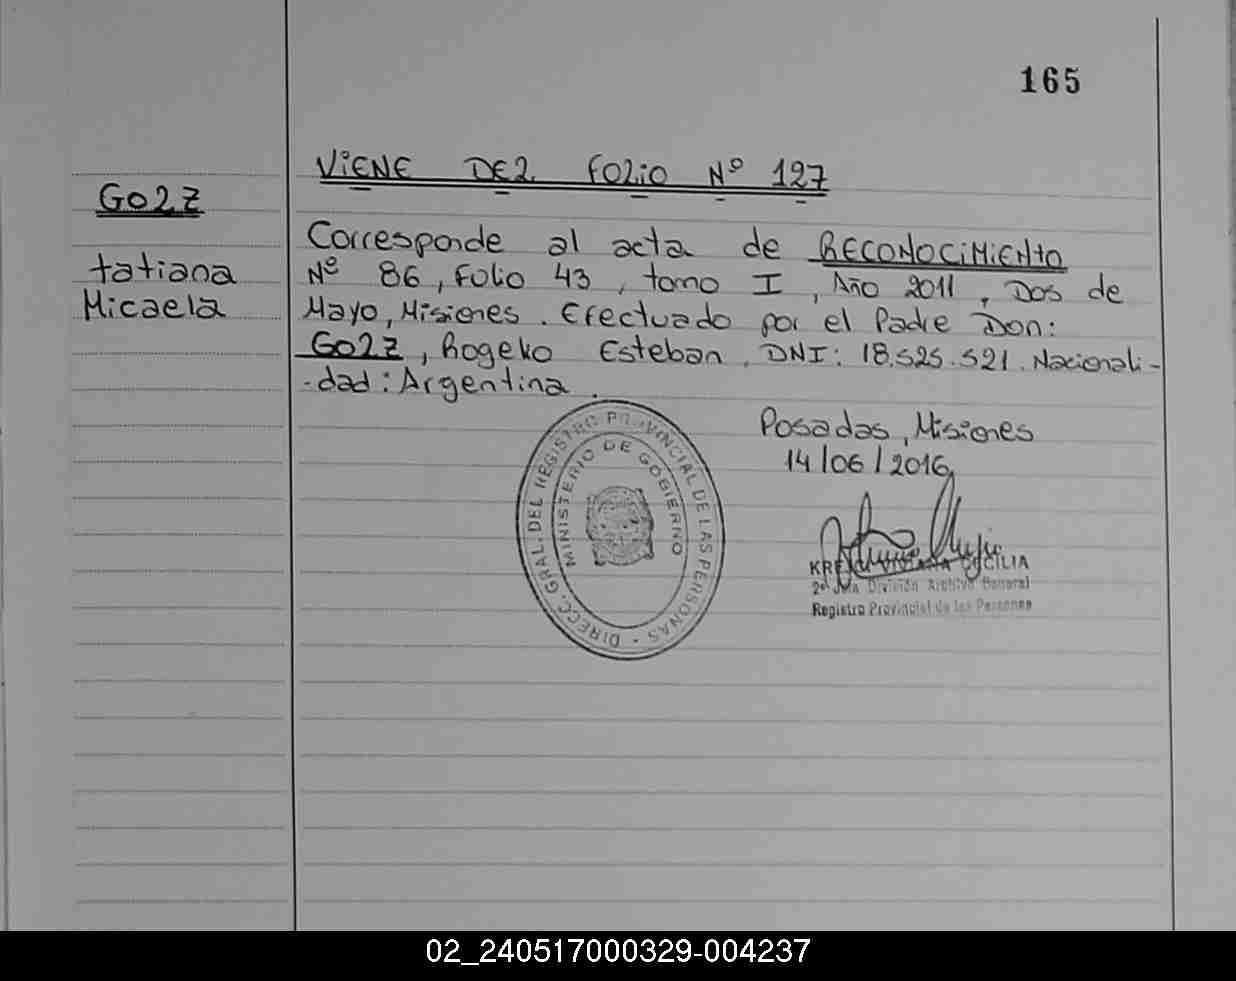 165
VIENE DEL FOLIO Nº 127
GOLZ
tatiana
Micaela
Corresponde al acta de RECONOCIMIENTO
Nº 86, Folio 43, tomo I, Año 2011, Dos de
Mayo, Misiones. Efectuado por el Padre Don:
GOLZ, Rogelio Esteban. DNI: 18.525.521. Nacionali-
-dad: Argentina.
Posadas, Misiones
14/06/2016
DIREC. GRAL. DEL REGISTRO PROVINCIAL DE LAS PERSONAS
MINISTERIO DE GOBIERNO
CECILIA
División Archivo General
Registro Provincial de las Personas
02_240517000329-004237